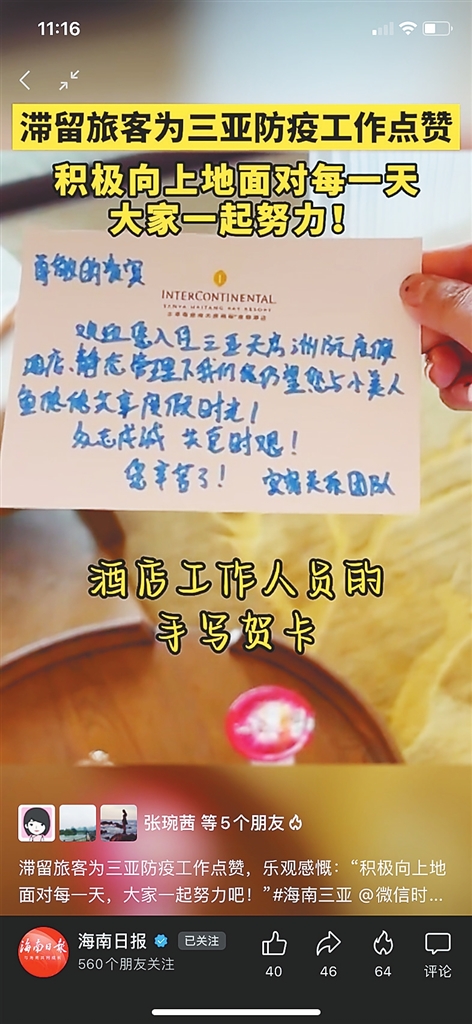 11:16
滞留旅客为三亚防疫工作点赞
积极向上地面对每一天
大家一起努力！
尊敬的贵宾
INTERCONTINENTAL
SANYA HAITANG BAY RESORT
欢迎您入住三亚天房洲际度假
酒店、静态管理下我们依仍望您与小美人
鱼继续共享度假时光！
众志成诚 共克时艰！
您辛苦了！ 宾客关系团队
酒店工作人员的
手写贺卡
张琬茜 等5个朋友
滞留旅客为三亚防疫工作点赞，乐观感慨：“积极向上地
面对每一天，大家一起努力吧！”#海南三亚 @微信时...
海南日报
海南日报 已关注
560个朋友关注
40 46 64 评论